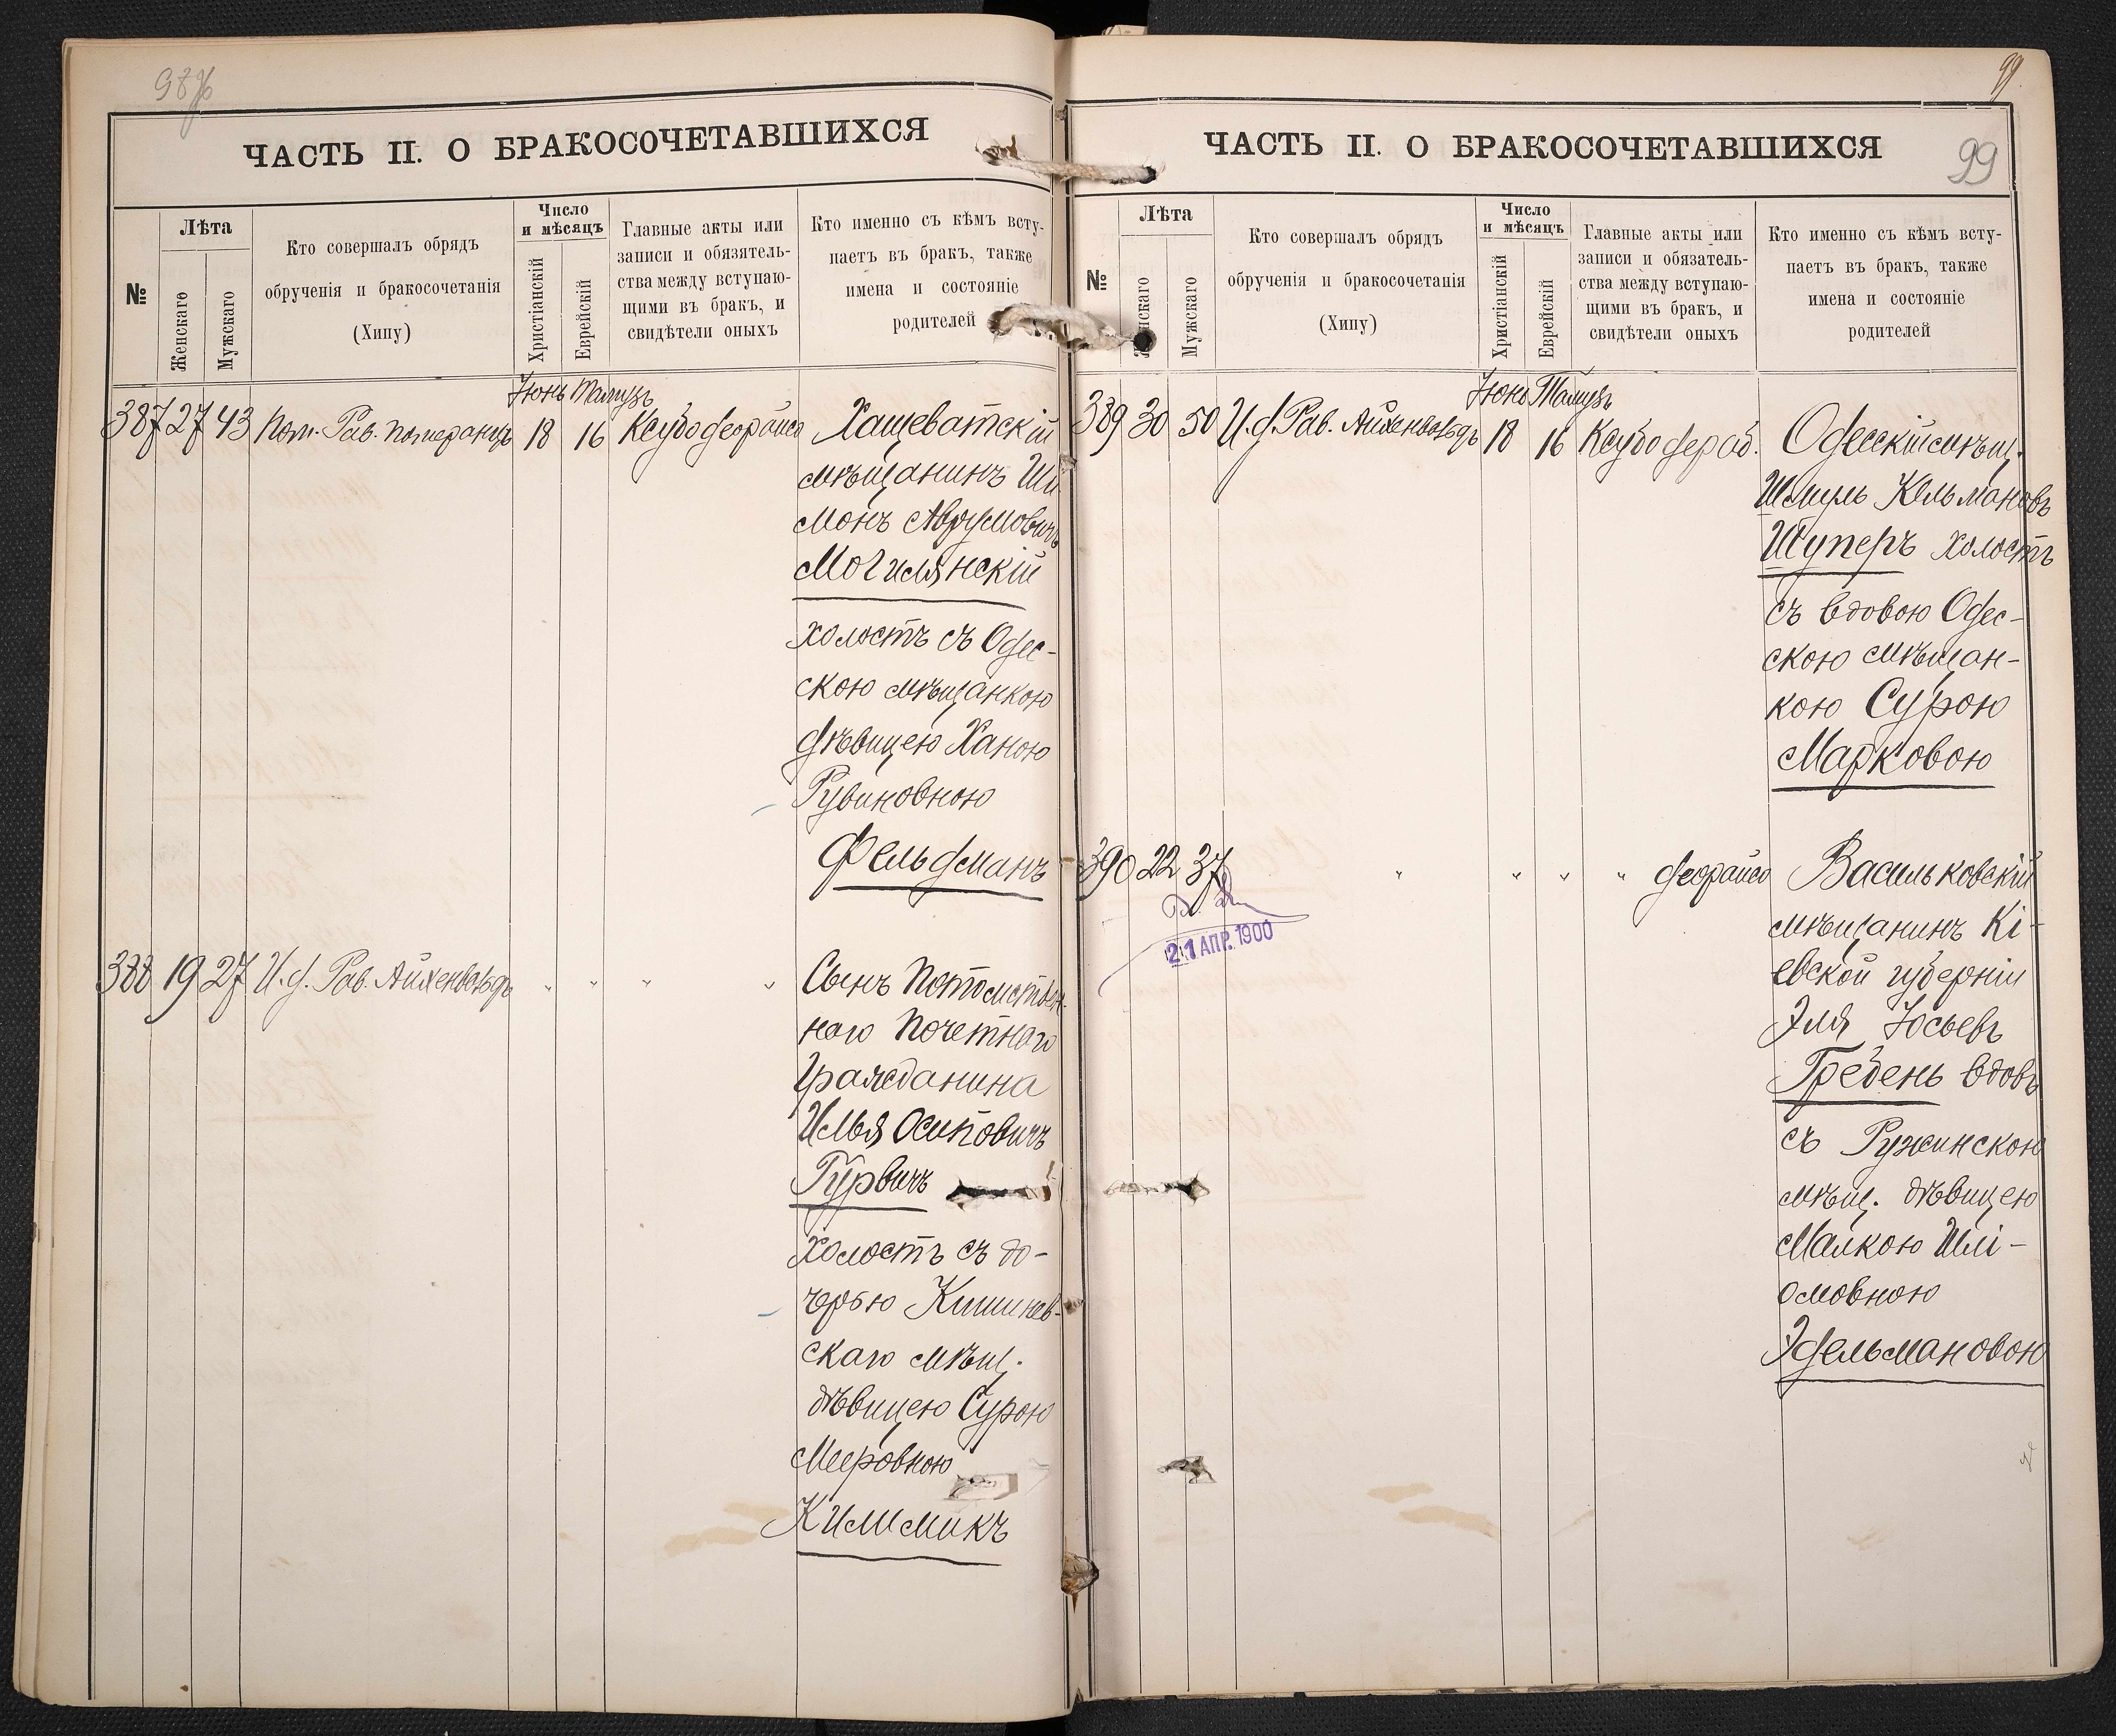 ЧАСТЬ II. О БРАКОСОЧЕТАВШИХСЯ
№
Лѣта
Женскаго
Мужскаго
Кто совершалъ обрядъ
обрученія и бракосочетанія
(Хипу)
Число
и мѣсяцъ
Христіанскій
Еврейскій
Главные акты или
записи и обязатель-
ства между вступаю-
щими въ бракъ, и
свидѣтели оныхъ
Кто именно съ кѣмъ всту-
паетъ въ бракъ, также
имена и состояніе
родителей
Іюнь Тамузъ
387 27 43 Пом. Рав. Померанцъ 18 16 Ксубо деорайсо Хащеватскій
мѣщанинъ Ши
монъ Аврумовичъ
Могилянскій
холостъ съ Одес-
скою мѣщанкою
дѣвицею Ханою
Рувиновною
Фельдманъ
388 19 27 И. д. Рав. Айхенвальдъ " " " " Сынъ Потомствен-
наго Почетнаго
Гражданина
Илья Осиповичъ
Гурвичъ
холостъ съ до-
черью Кишинев-
скаго мѣщ.
дѣвицею Сурою
Мееровною
Килимникъ
99
ЧАСТЬ II. О БРАКОСОЧЕТАВШИХСЯ
99
№
Лѣта
Женскаго
Мужскаго
Кто совершалъ обрядъ
обрученія и бракосочетанія
(Хипу)
Число
и мѣсяцъ
Христіанскій
Еврейскій
Главные акты или
записи и обязатель-
ства между вступаю-
щими въ бракъ, и
свидѣтели оныхъ
Кто именно съ кѣмъ всту-
паетъ въ бракъ, также
имена и состояніе
родителей
Іюнь Тамузъ
389 30 50 И. д. Рав. Айхенвальдъ 18 16 Ксубо дераб. Одесскій мѣщ.
Шмуль Кельмановъ
Шуперъ холостъ
съ вдовою Одес-
скою мѣщан-
кою Сурою
Марковою
390 22 37 " " " " деорайсо Васильковскій
мѣщанинъ Кі-
евской губерніи
Эля Іосьевъ
Гребень вдовъ
съ Ружинскою
мѣщ. дѣвицею
Малкою Шлі-
омовною
Эдельмановою
21 АПР. 1900